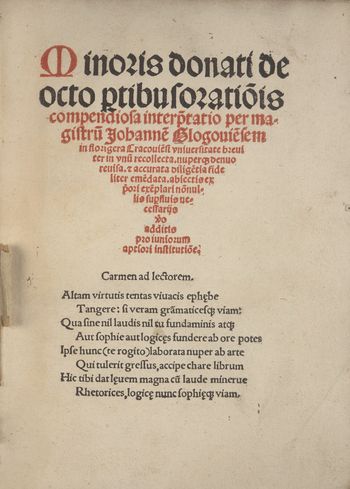 Minoris donati de
octo ꝑtibus oratiōis
compendiosa interp̄tatio per ma-
gistrū Johannē Glogouiēsem
in florigera Cracouiēsi vniuersitate breui
ter in vnū recollecta. nuperqꝫ denuo
reuisa. ⁊ accurata diligētia fide
liter emēdata. abiectis ex
p̄ori exēplari nōnul-
lis supfluis ne-
cessarijs
ꝟo
additis
pro iuniorum
aptiori institutiōe.
Carmen ad lectorem.
Altam virtutis tentas viuacis ephębe
Tangere: si veram grāmaticesqꝫ viam:
Qua sine nil laudis nil tu fundaminis atqꝫ
Aut sophie aut logicęs fundere ab ore potes
Ipse hunc (te rogito) laborata nuper ab arte
Qui tulerit gressus, accipe chare librum
Hic tibi dat lęuem magna cū laude minerue
Rhetorices, logicę nunc sophięqꝫ viam.